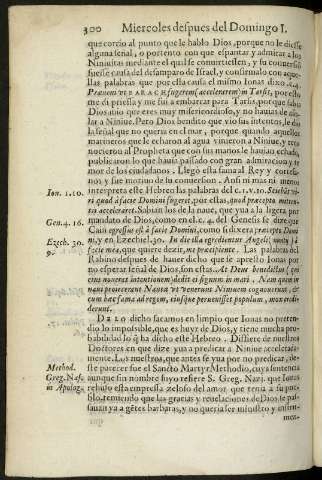 300 Miercoles despues del Domingo I.
que corrio al punto que le hablò Dios, porque no le diesse
alguna señal, o portento con que espantar, y admirar a los
Niniuitas mediante el qual se conuirtiessen, y su conuersion
fuesse causa del desamparo de Israel, y confirmalo con aque-
llas palabras que por esta causa el mismo Ionas dixo c.4.
Præueni VIBARACH fugerem, accelerarem in Tarsis, por esto
me di priessa y me fui a embarcar para Tarsis, porque sabia
Dios mio que eres muy misericordioso, y no hauias de
lar a Niniue. Pero Dios bendito que vio sus intentos, le dio
la señal que no queria en el mar, porque quando aquellos
marineros que le echaron al agua vinieron a Niniue, y reco
nocieron al Propheta que con sus manos le hauian echado,
publicaron lo que hauia passado con gran admiracion, y te
mor de los ciudadanos. Llegò esta fama al Rey y cortesa-
nos, y fue motiuo de su conuersion. Ansi ni mas ni menos
interpreta este Hebreo las palabras del c.1.v.10.
Ion. 1.10.
ri quod à facie Domini fugeret, por estas, quod præcepto
acceleraret. Sabian los de la naue, que yua a la ligera por
mandato de Dios, como en el c.4. del Genesis se dize que
Gen.4.16.
Cain egressus est à facie Domini, como si dixera præcepto Domi
ni, y en Ezechiel.30. In die illa egredientur Angeli, nuntij à
Ezech. 30.
9.
facie mea, que quiere dezir, me præcipiente. Las palabras del
Rabino despues de hauer dicho que se apresto Ionas por
no esperar señal de Dios, son estas. At Deus benedictus (
eius nouerat intentionem) dedit ei signum in mari. Nam quum in
mari proiecerant Nautæ & venerunt Niniuem cognouerunt,
cum hæc fama ad regem, eiusque peruenisset populum,
derunt.
DADO dicho sacamos en limpio que Ionas no preten-
dio lo impossible, que es huyr de Dios, y tiene mucha pro-
babilidad lo que ha dicho este Hebreo. Difiere de nuestros
Doctores en que dize yua a predicar a Niniue accelerada-
mente. Los nuestros, que antes se yua por no predicar, de-
ste parecer fue el Sancto Martyr Methodio, cuya sentencia
Method.
aunque sin nombre suyo refiere S. Greg. Nazi. que Ionas
Greg. Naz.
in Apolog.
rehusò esta empressa zeloso del amor que tenia a su pue-
blo, temiendo que las gracias y reuelaciones de Dios te pas-
sauan ya a gentes barbaras, y no queria ser ministro y instru-
men-